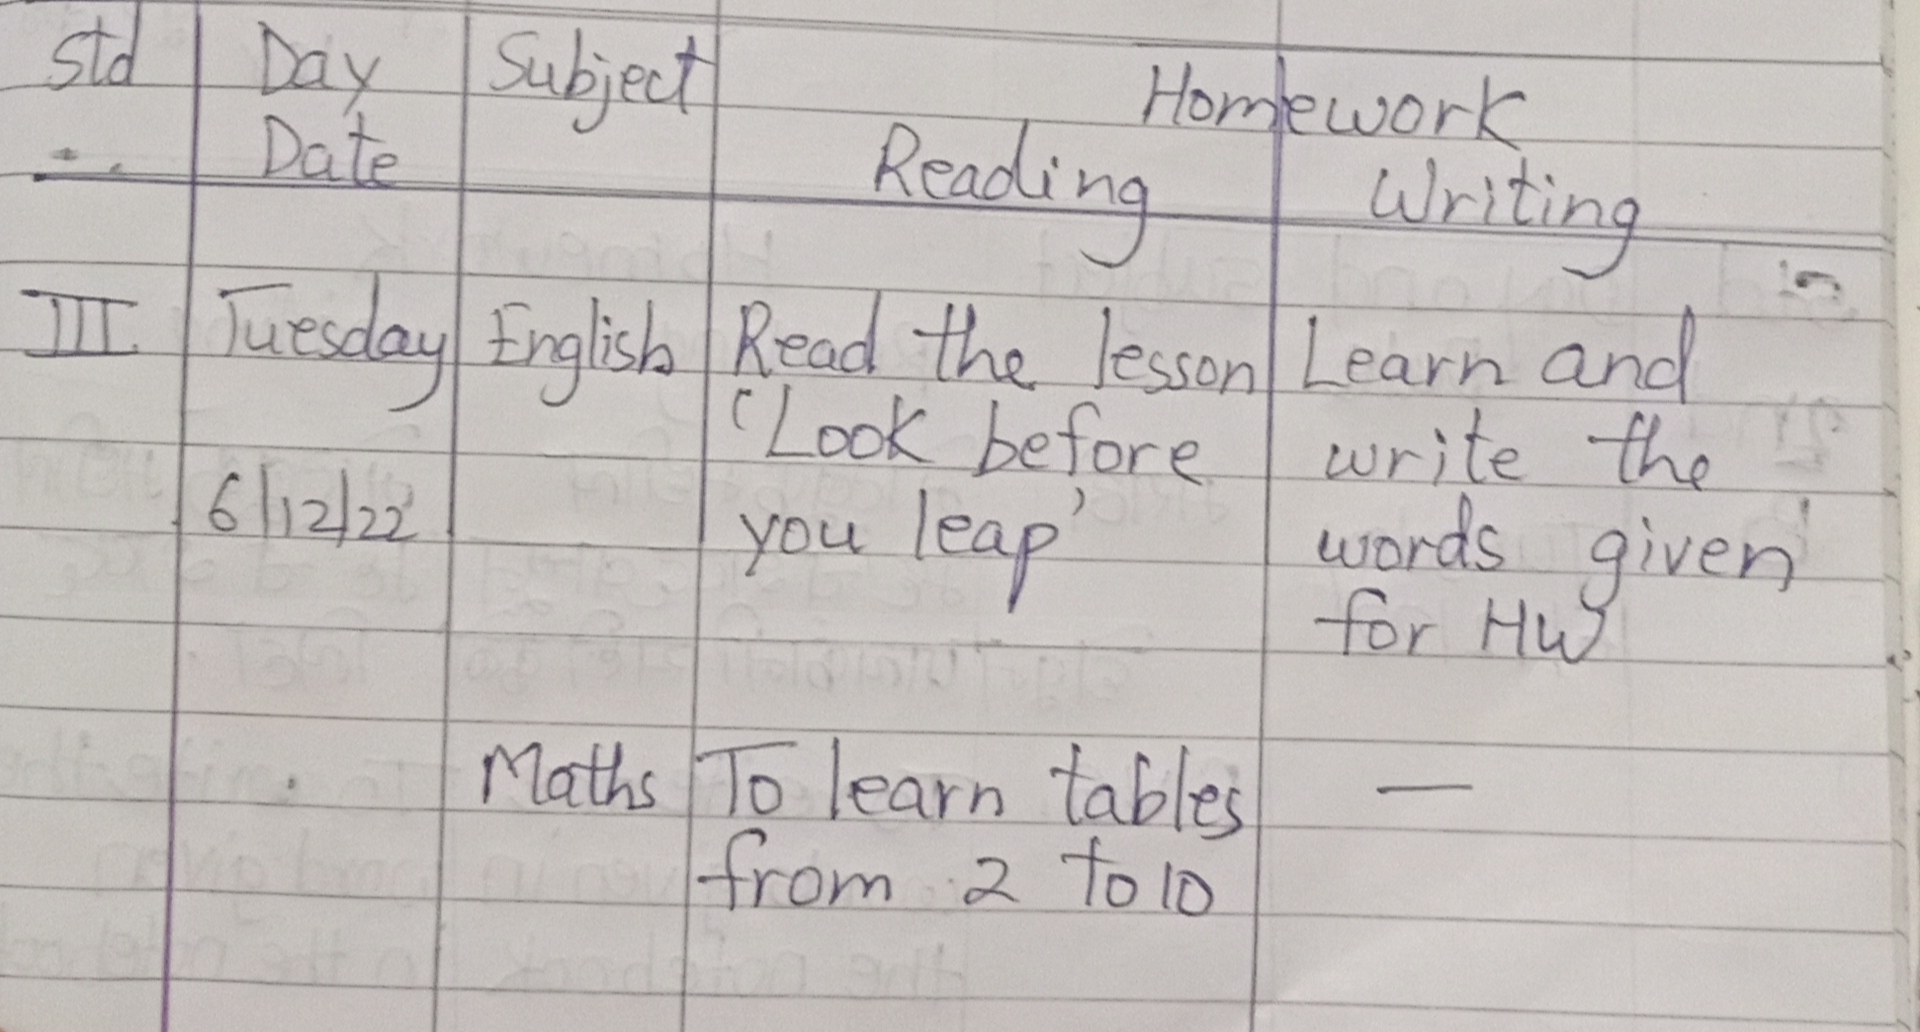 Std Day Subject Homework
Date Reading Writing
III Tuesday English Read the lesson Learn and
'Look before write the
6/12/22 you leap' words given
for HW
Maths To learn tables —
from 2 To 10